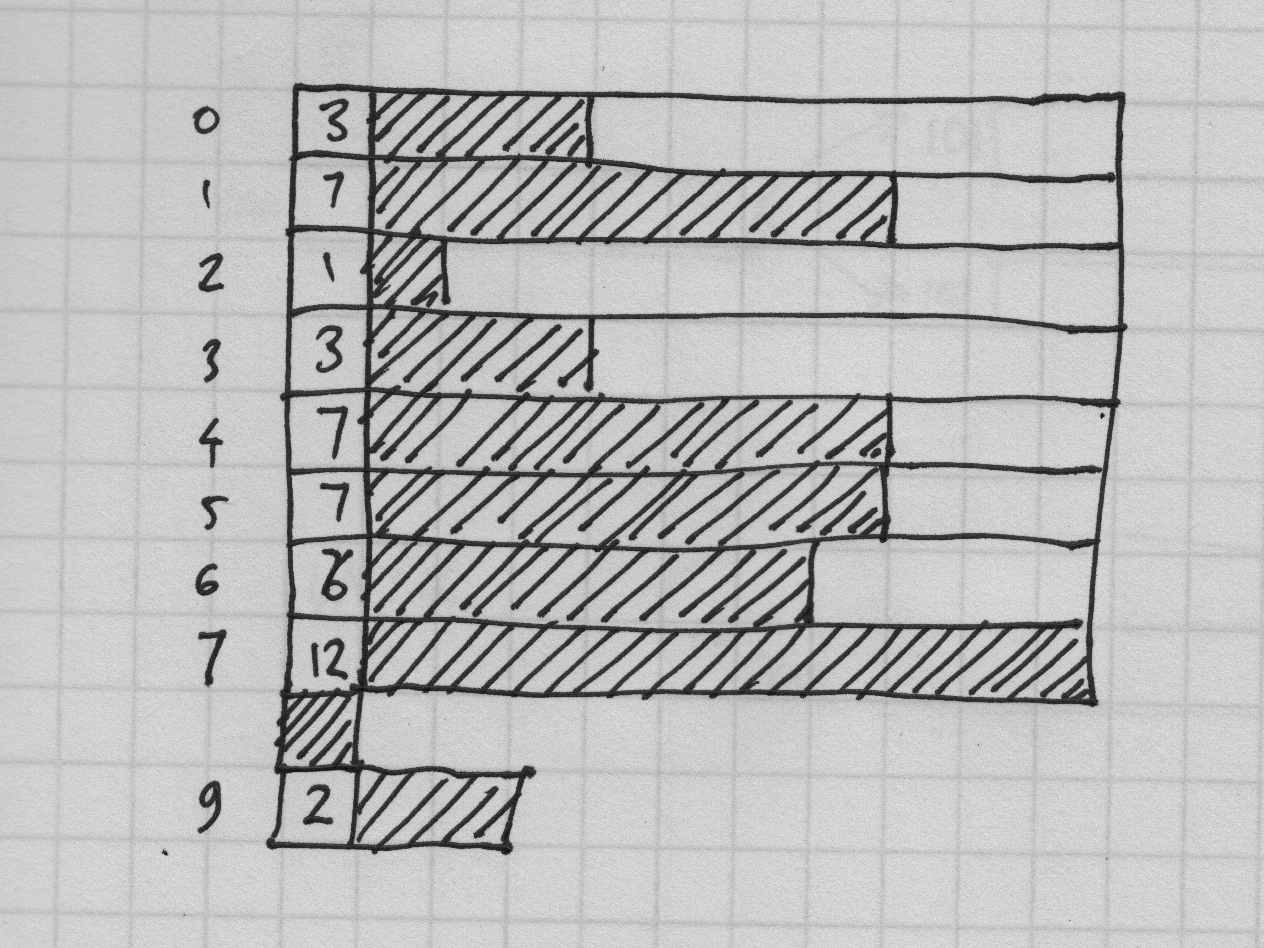 0 3
1 7
2 1
3 3
4 7
5 7
6 6
7 12
9 2